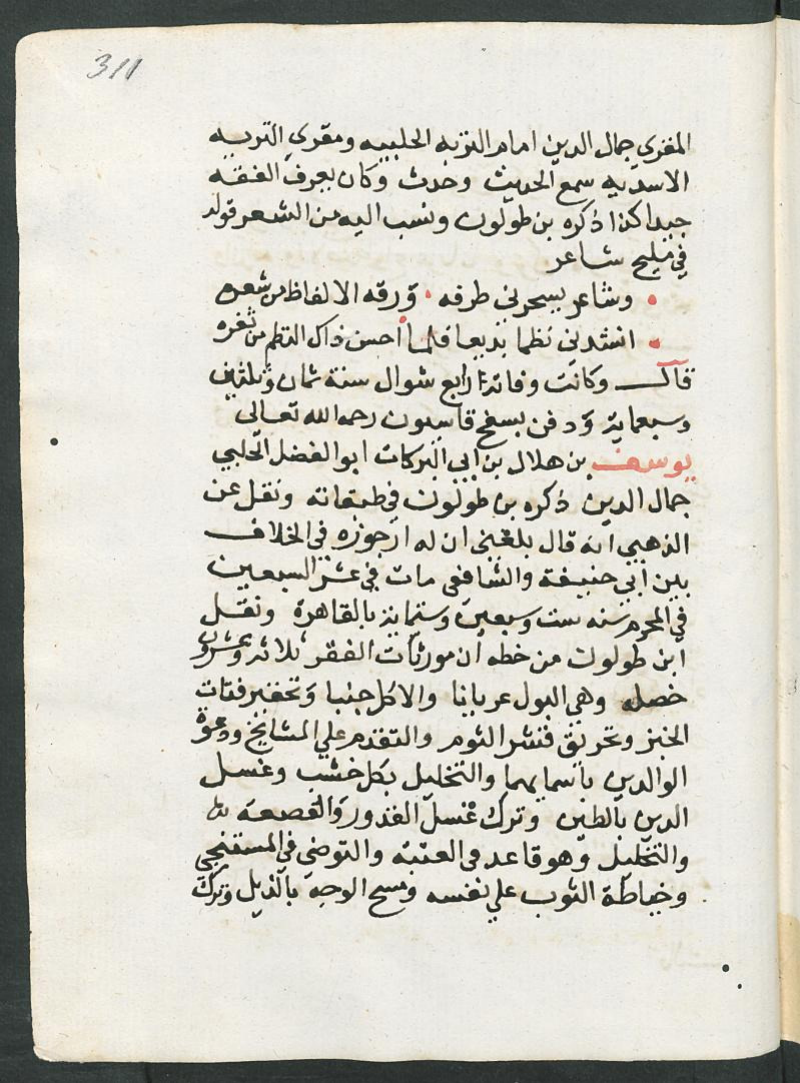 311
المقري جمال الدين امام التربه الحلبيه ومقري التربه
الاسديه سمع الحديث وحدث وكان يعرف الفقه
جيدا كذا ذكره بن طولون ونسب اليه من الشعر قوله
في مليح شاعر
وشاعر يسحرني طرفه ورقه الالفاظ من شعره
انشدني نظما بديعا فلما احسن ذاك النظم من ثغره
قال وكانت وفاته رابع شوال سنة ثمان وثلثين
وسبعماية ودفن بسفح قاسيون رحمه الله تعالى
يوسف بن هلال بن ابي البركات ابو الفضل الحلبي
جمال الدين ذكره بن طولون في طبقاته ونقل عن
الذهبي انه قال بلغني ان له ارجوزه في الخلاف
بين ابي حنيفة والشافعي مات في عشر السبعين
في المحرم سنه ست وسبعين وستماية بالقاهرة ونقل
ابن طولون من خطه ان مورثات الفقر ثلاثه وعشرون
خصله وهي البول عريانا والاكل جنبا وتحقير فتات
الخبز وتحريق قشر الثوم والتقدم علي المشايخ ودعوة
الوالدين باسمايهما والتخليل بكل خشب وغسل
اليدين بالطين وترك غسل القدور والقصعة
والتخليل وهو قاعد في العتبه والتوضي في المستنجي
وخياطة الثوب علي نفسه ومسح الوجه بالذيل وترك